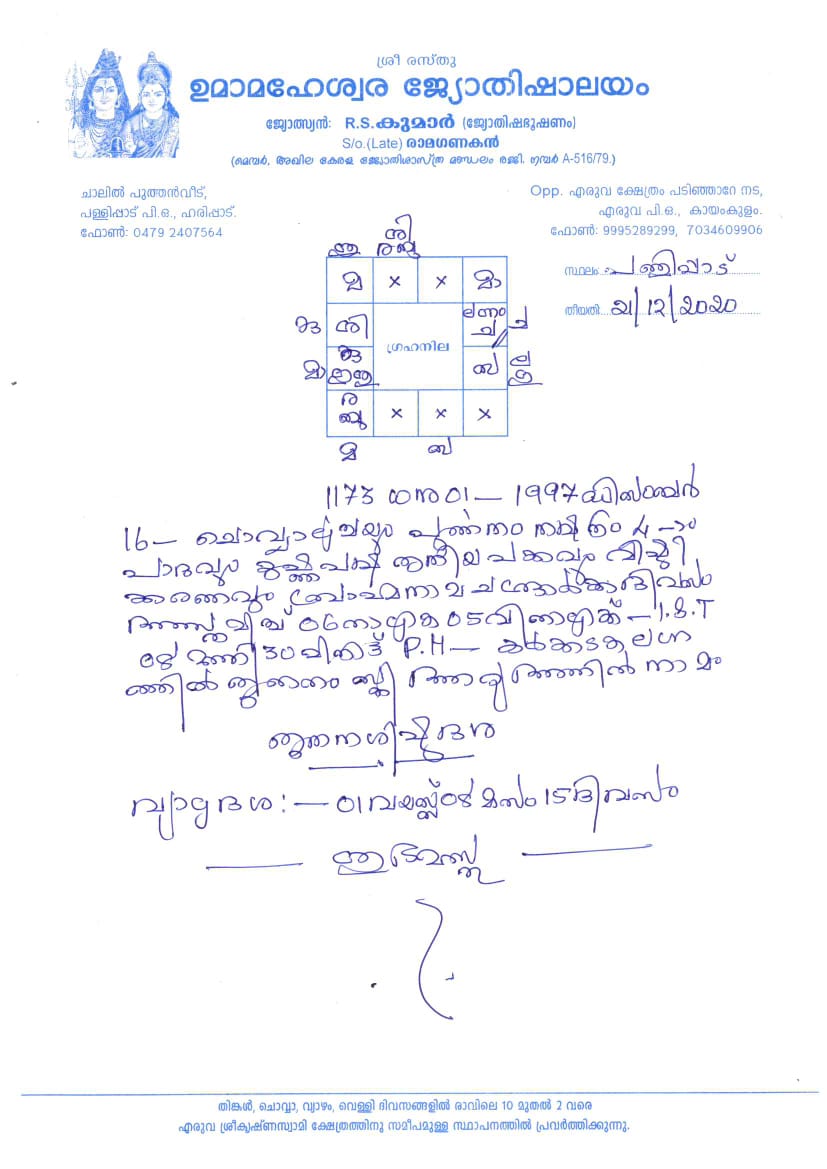 ശ്രീ രസ്തു
ഉമാമഹേശ്വര ജ്യോതിഷാലയം
ജ്യോത്സ്യൻ: R.S.കുമാർ (ജ്യോതിഷഭൂഷണം)
S/o.(Late) രാമഗണകൻ
(മെമ്പർ, അഖില കേരള ജ്യോതിശാസ്ത്ര മണ്ഡലം രജി. നമ്പർ A-516/79.)
ചാലിൽ പുത്തൻവീട്,
പള്ളിപ്പാട് പി.ഒ., ഹരിപ്പാട്.
ഫോൺ: 0479 2407564
Opp. എരുവ ക്ഷേത്രം പടിഞ്ഞാറേ നട,
എരുവ പി.ഒ., കായംകുളം.
ഫോൺ: 9995289299, 7034609906
സ്ഥലം: പള്ളിപ്പാട്
തീയതി 21/12/2020
ശി
മ x x മാ
ഗു ശി ലഗ്നം ച
ഗ്രഹനില
മാ ഗു
ര ബു x x x
1173 ധനു 01 — 1997 ഡിസംബർ
16 — ചൊവ്വാഴ്ചയും പൂണർതം നക്ഷത്രം 4-ാം
പാദവും കൃഷ്ണപക്ഷ ദ്വിതീയ പക്കവും
കരണവും ദിവസം
അസ്തമിച്ച് 06 നാഴിക 05 വിനാഴികക്ക് — I.S.T
08 മണി 30 മിനിട്ട് P.M — കർക്കടക ലഗ്ന
ത്തിൽ ജനനം നാമം
01 വയസ്സ് 08 മാസം 15 ദിവസം
തിങ്കൾ, ചൊവ്വാ, വ്യാഴം, വെള്ളി ദിവസങ്ങളിൽ രാവിലെ 10 മുതൽ 2 വരെ
എരുവ ശ്രീകൃഷ്ണസ്വാമി ക്ഷേത്രത്തിനു സമീപമുള്ള സ്ഥാപനത്തിൽ പ്രവർത്തിക്കുന്നു.